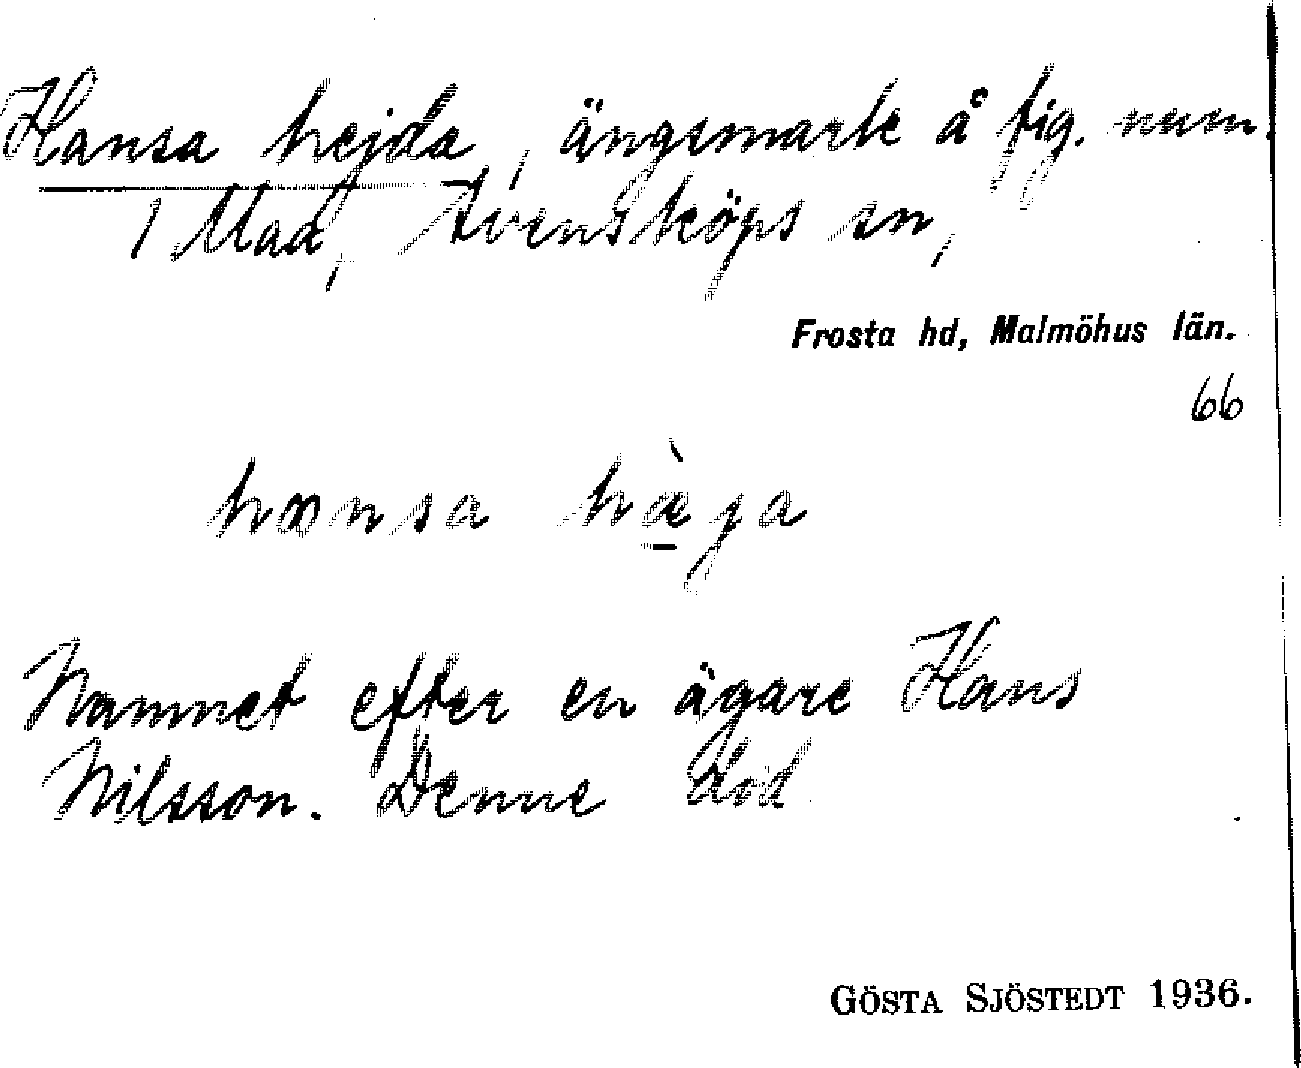 Hansa hejda, ängsmark å fig. num.
1 Maa, Svensköps sn,
Frosta hd, Malmöhus län.
66
hansa hæ̀ja
Namnet efter en ägare Hans
Nilsson. Denne död
GÖSTA SJÖSTEDT 1936.